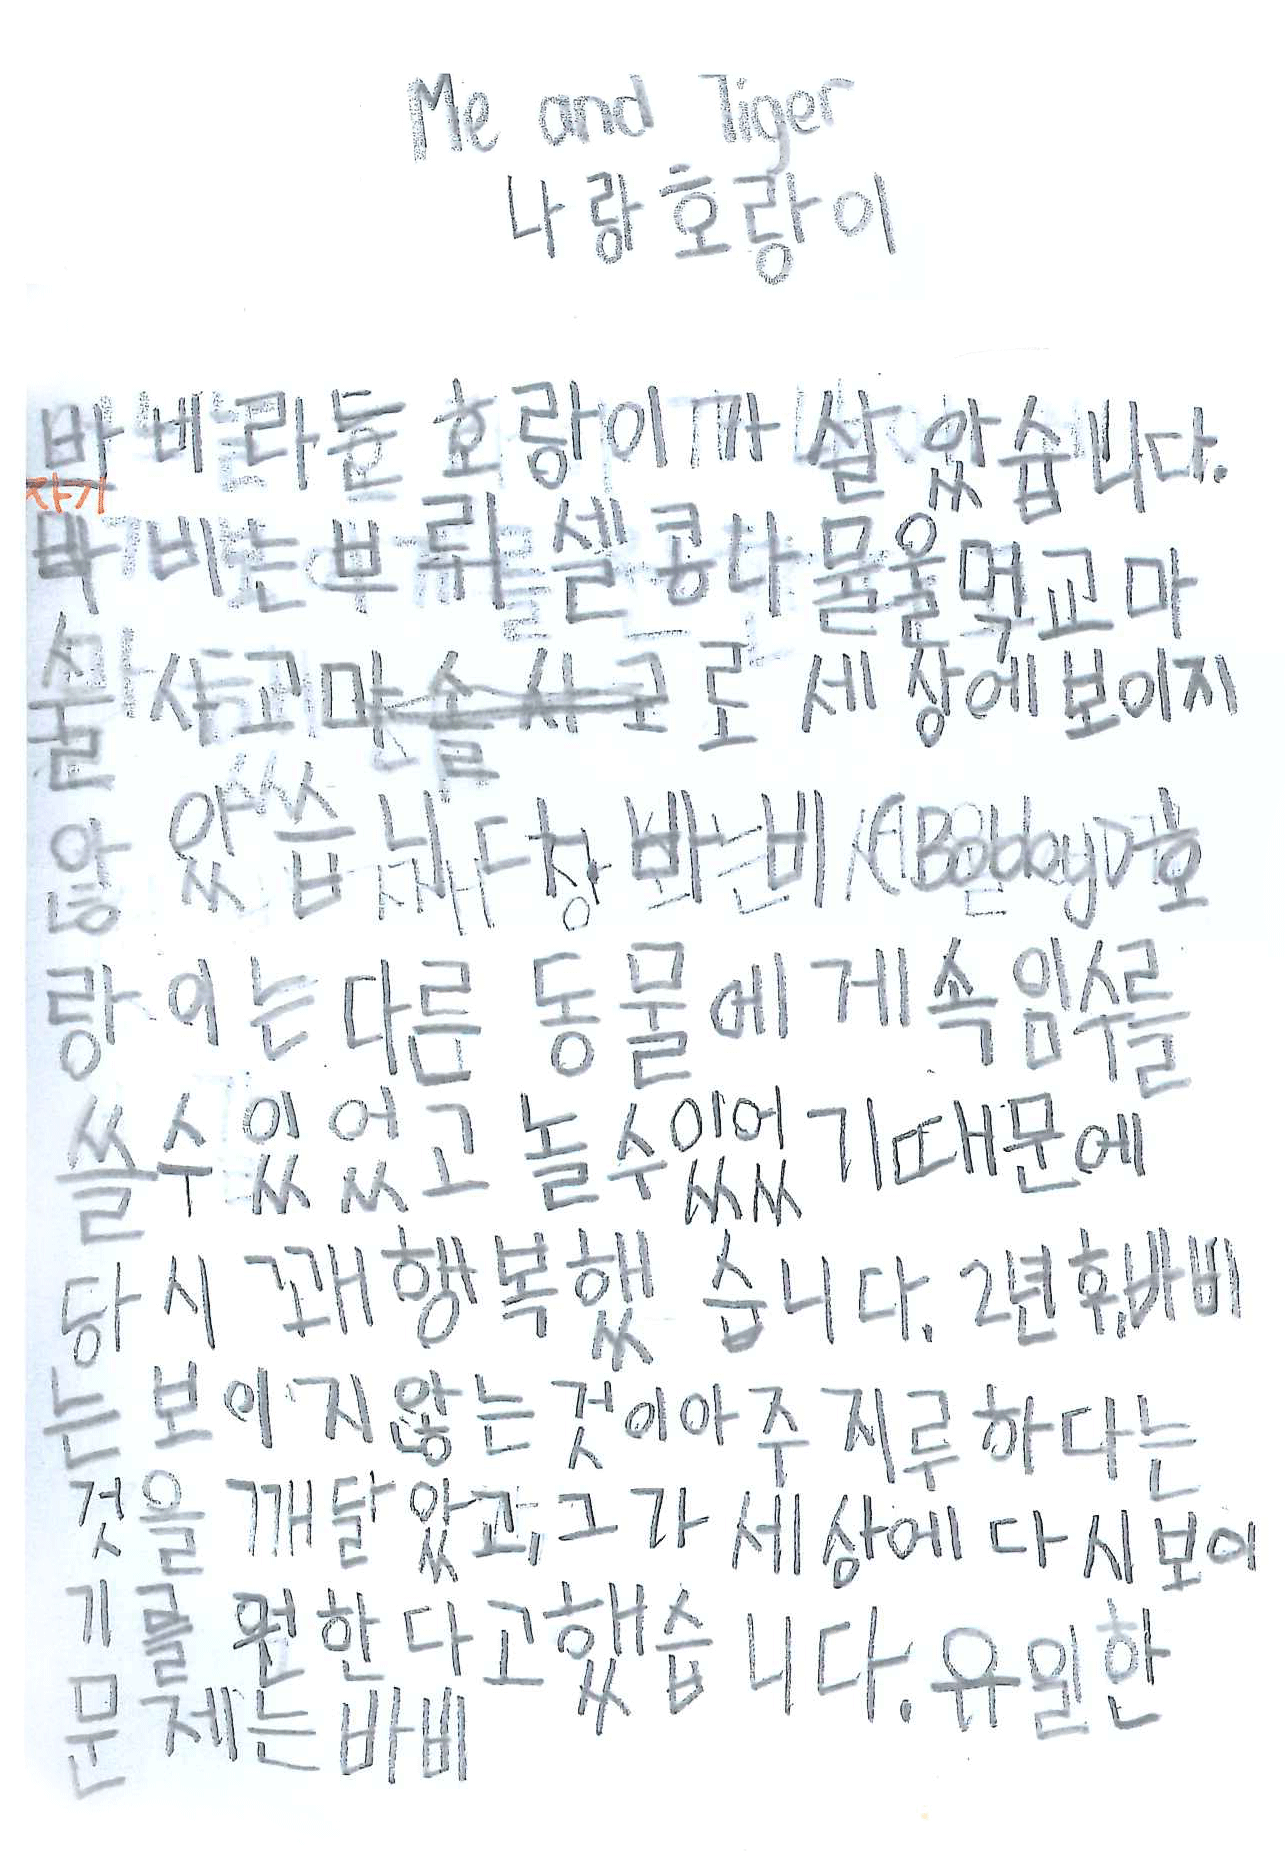 Me and Tiger
나랑 호랑이
바베라는 호랑이가 살았습니다.
자기
바비는 부뤼셀콩나물을 먹고 마
술 사고 로 세상에 보이지
않았씁니다. 바비 (Bobby) 호
랑이는 다름 동물에게 속임수를
쓸수 있었고 놀수있었기때문에
당시 꽤 행복했습니다. 2년 후, 바비
는 보이지 않는 것이 아주 지루하다는
것을 깨달았고, 그가 세상에 다시 보이
기를 원한다고했습니다. 유일한
문제는 바비